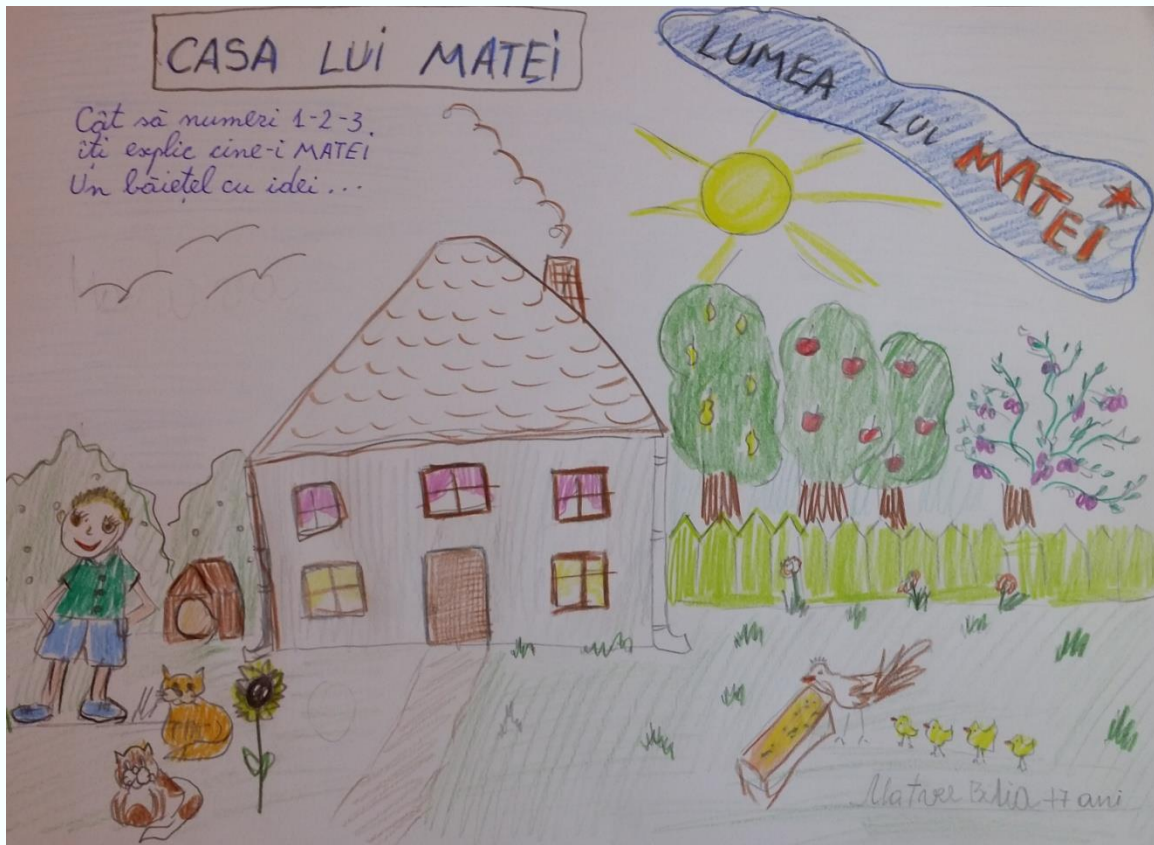 CASA LUI MATEI
LUMEA LUI MATEI
Cât să numeri 1-2-3,
îți explic cine-i MATEI
Un băiețel cu idei...
ani